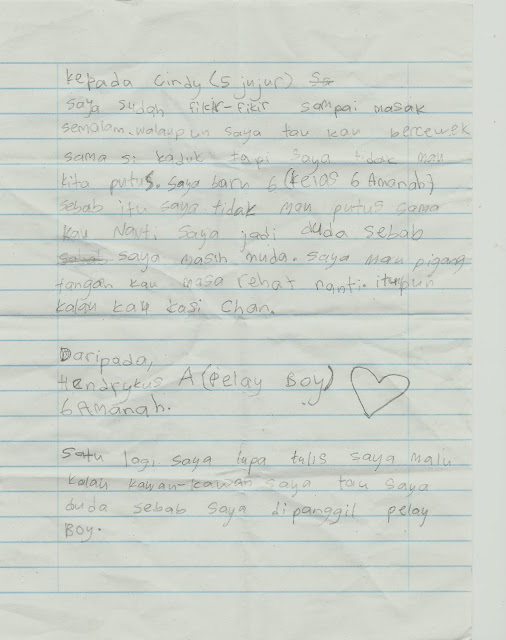 kepada Cindy (5 jujur) Sa
Saya sudah fikir-fikir sampai masak
semalam. walaupun saya tau kau bercewek
sama si kaduk tapi saya tidak mau
kita putus. Saya baru 6 (kelas 6 Amanah)
sebab itu saya tidak mau putus sama
kau Nanti saya jadi duda sebab
saya masih muda. saya mau pigang
tangan kau masa rehat nanti. itupun
kalau kau kasi Chan.
Daripada,
Hendrykus A (Pelay Boy)
6 Amanah.
Satu lagi saya lupa tulis saya malu
kalau kawan-kawan saya tau saya
duda sebab saya dipanggil pelay
Boy.